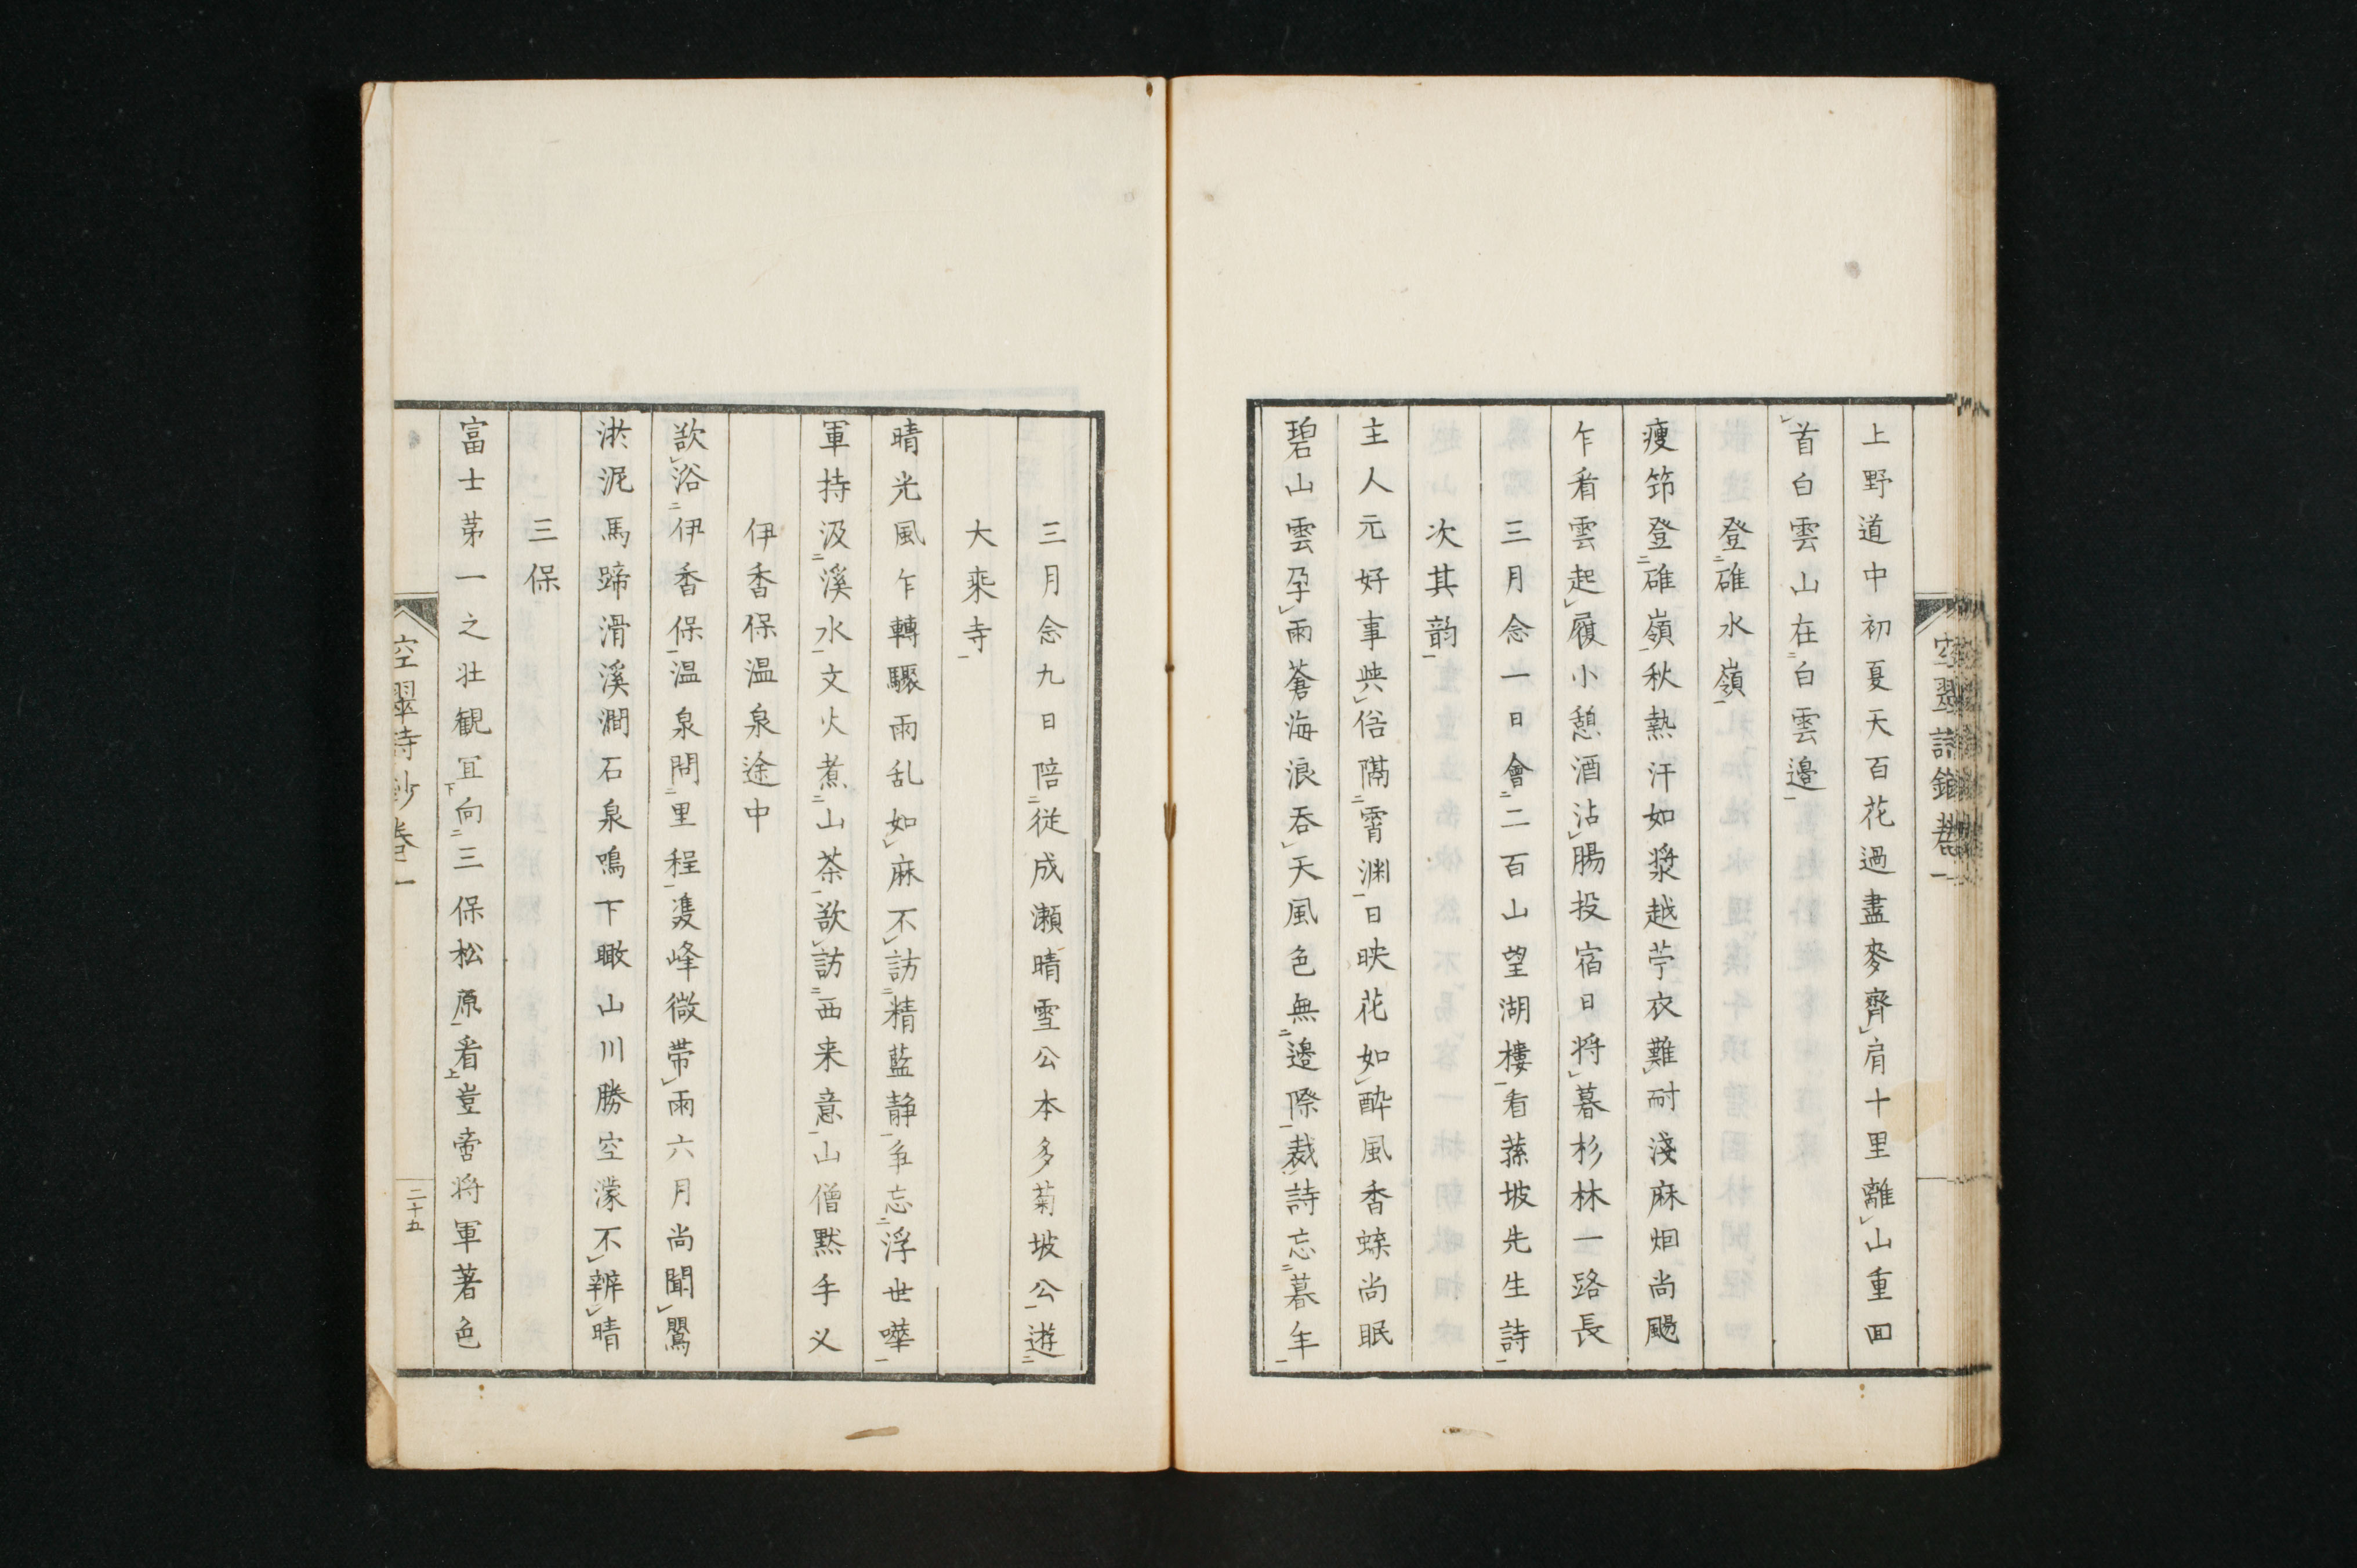 上野道中初夏天百花過盡麥齊肩十里離山重回
首白雲山在白雲邉
登碓水嶺
瘦筇登碓嶺秋熱汗如漿越苧衣難耐淺麻烟尚颺
乍看雲起履小憩酒沾腸投宿日将暮杉林一路長
三月念一日會二百山望湖樓看蓀坡先生詩
次其韵
主人元好事興俗隔霄渊日映花如酔風香蝶尚眠
碧山雲孕雨蒼海浪呑天風色無邉際裁詩忘暮年
空翠詩鈔卷一
三月念九日陪從成瀬晴雪公本多菊坡公遊
大乗寺
晴光風乍轉驟雨乱如麻不訪精藍静争忘浮世嘩
軍持汲溪水文火煮山茶欲訪西来意山僧黙手义
伊香保温泉途中
欲浴伊香保温泉問里程雙峰微帯雨六月尚聞鶯
淤泥馬蹄滑溪澗石泉鳴下瞰山川勝空濛不辨晴
三保
富士苐一之壮観冝向三保松原看豈啻将軍著色
空翠詩鈔卷一
二十五